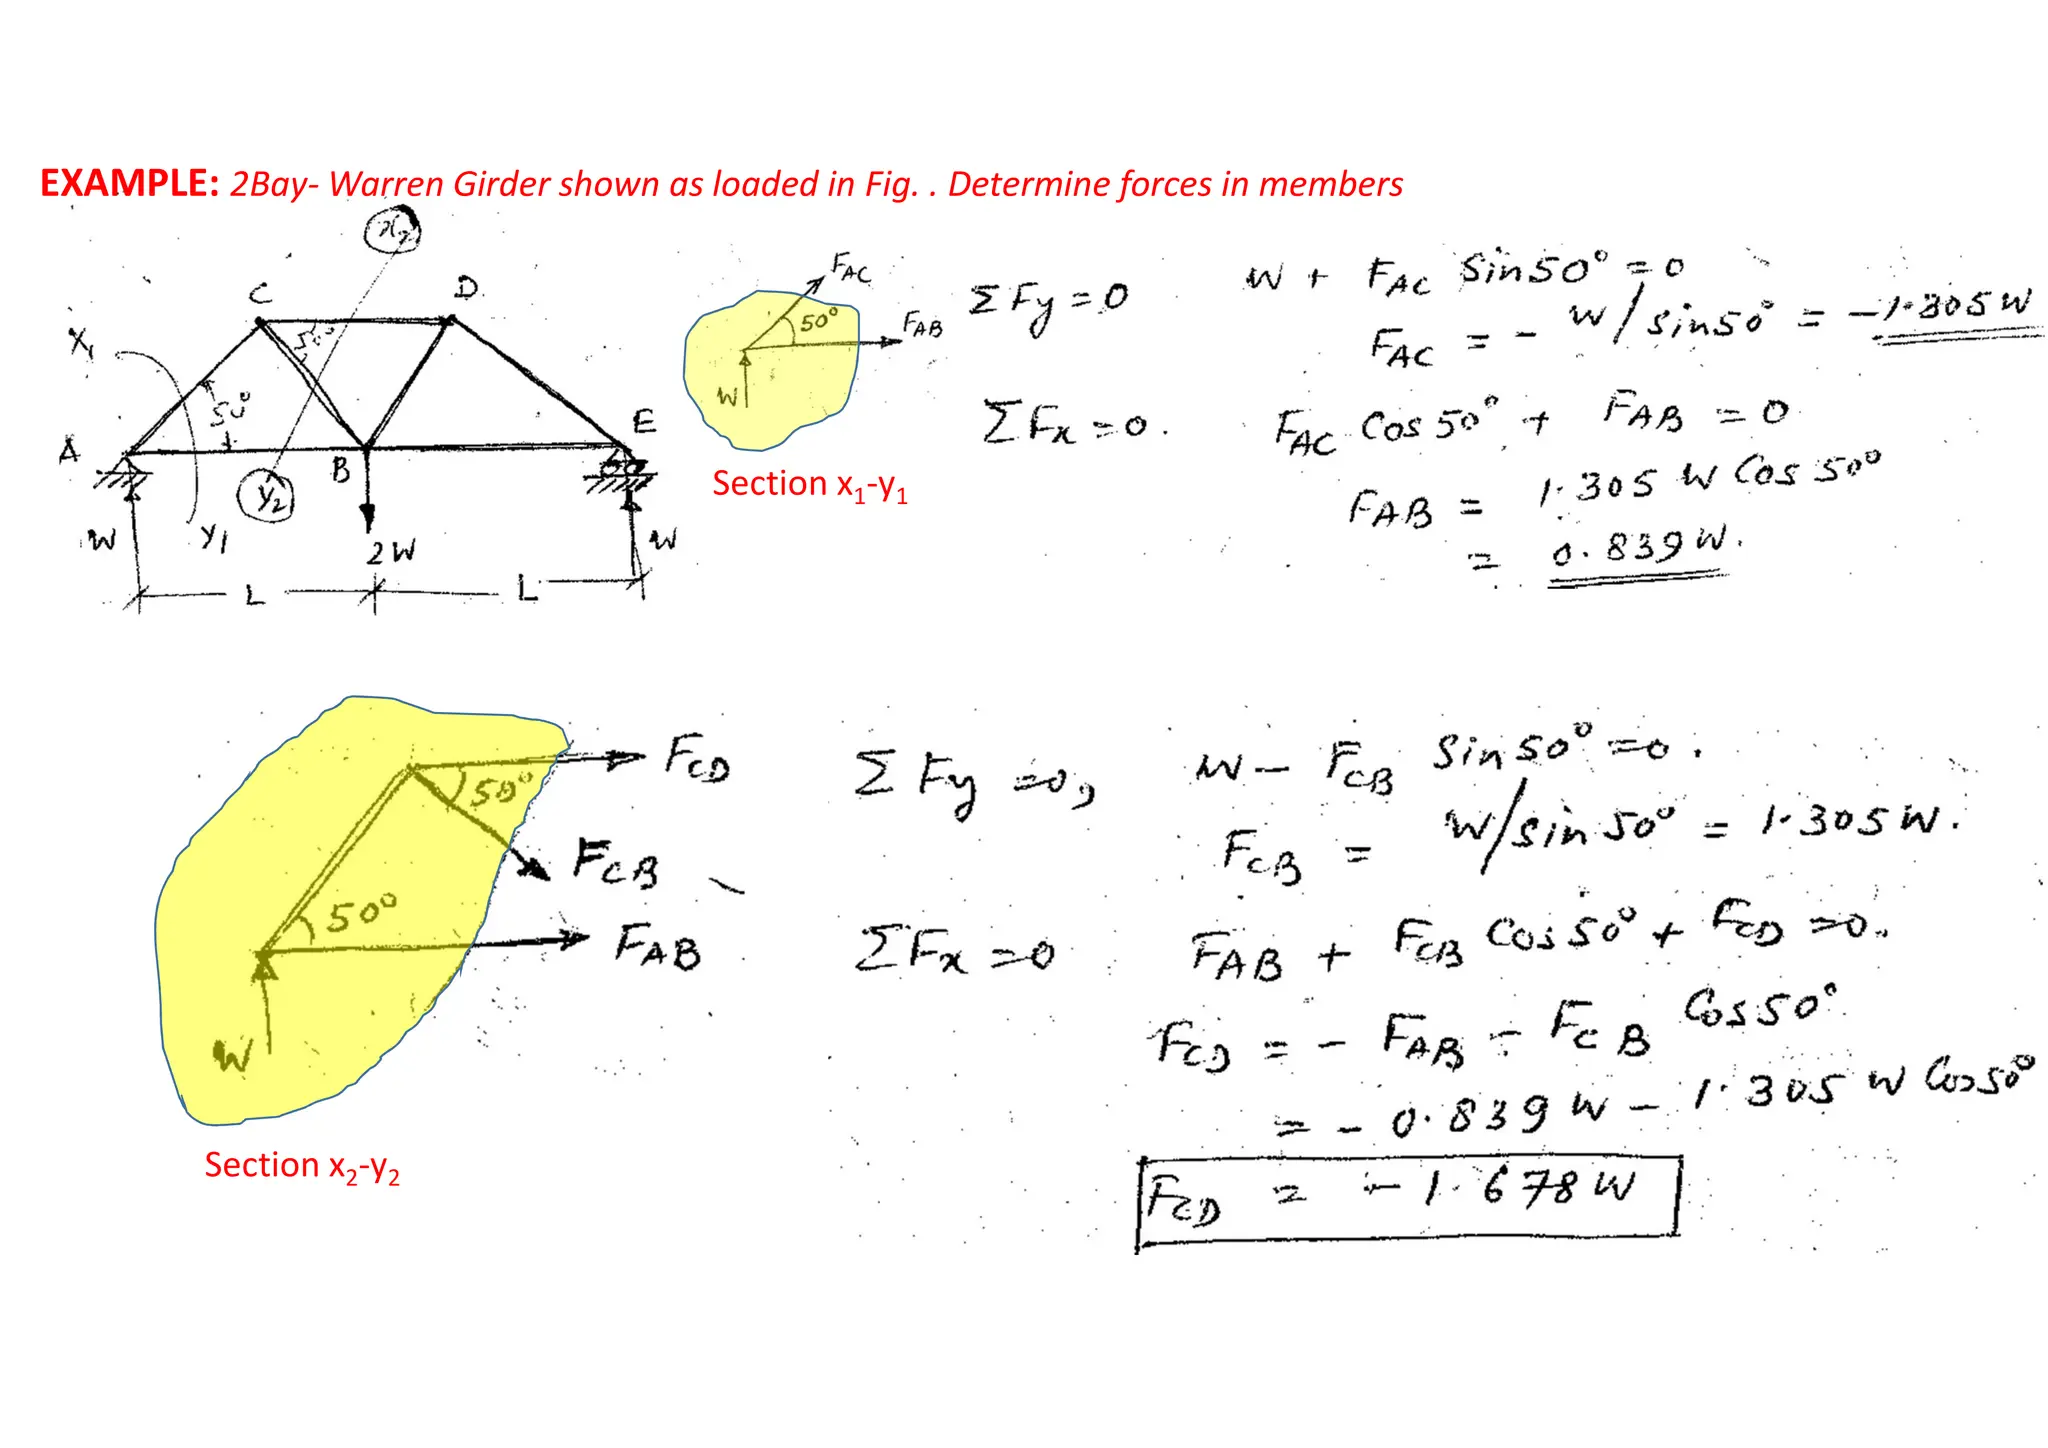 EXAMPLE: 2Bay- Warren Girder shown as loaded in Fig. . Determine forces in members
x₂
C
D
X₁
50°
50°
A
B
E
y₂
y₁
W
2W
W
L
L
F_AC
50°
F_AB
W
Section x₁-y₁
ΣFy=0
W + F_AC Sin50° = 0
F_AC = - W/sin50° = -1.305W
ΣFx=0.
F_AC Cos50° + F_AB = 0
F_AB = 1.305 W Cos50°
= 0.839W.
F_CD
50°
F_CB
50°
F_AB
W
Section x₂-y₂
ΣFy=0,
W - F_CB Sin50°=0.
F_CB = W/sin50° = 1.305W.
ΣFx=0
F_AB + F_CB Cos50° + F_CD=0.
F_CD = - F_AB - F_CB Cos50°
= - 0.839W - 1.305 W Cos50°
F_CD = -1.678W